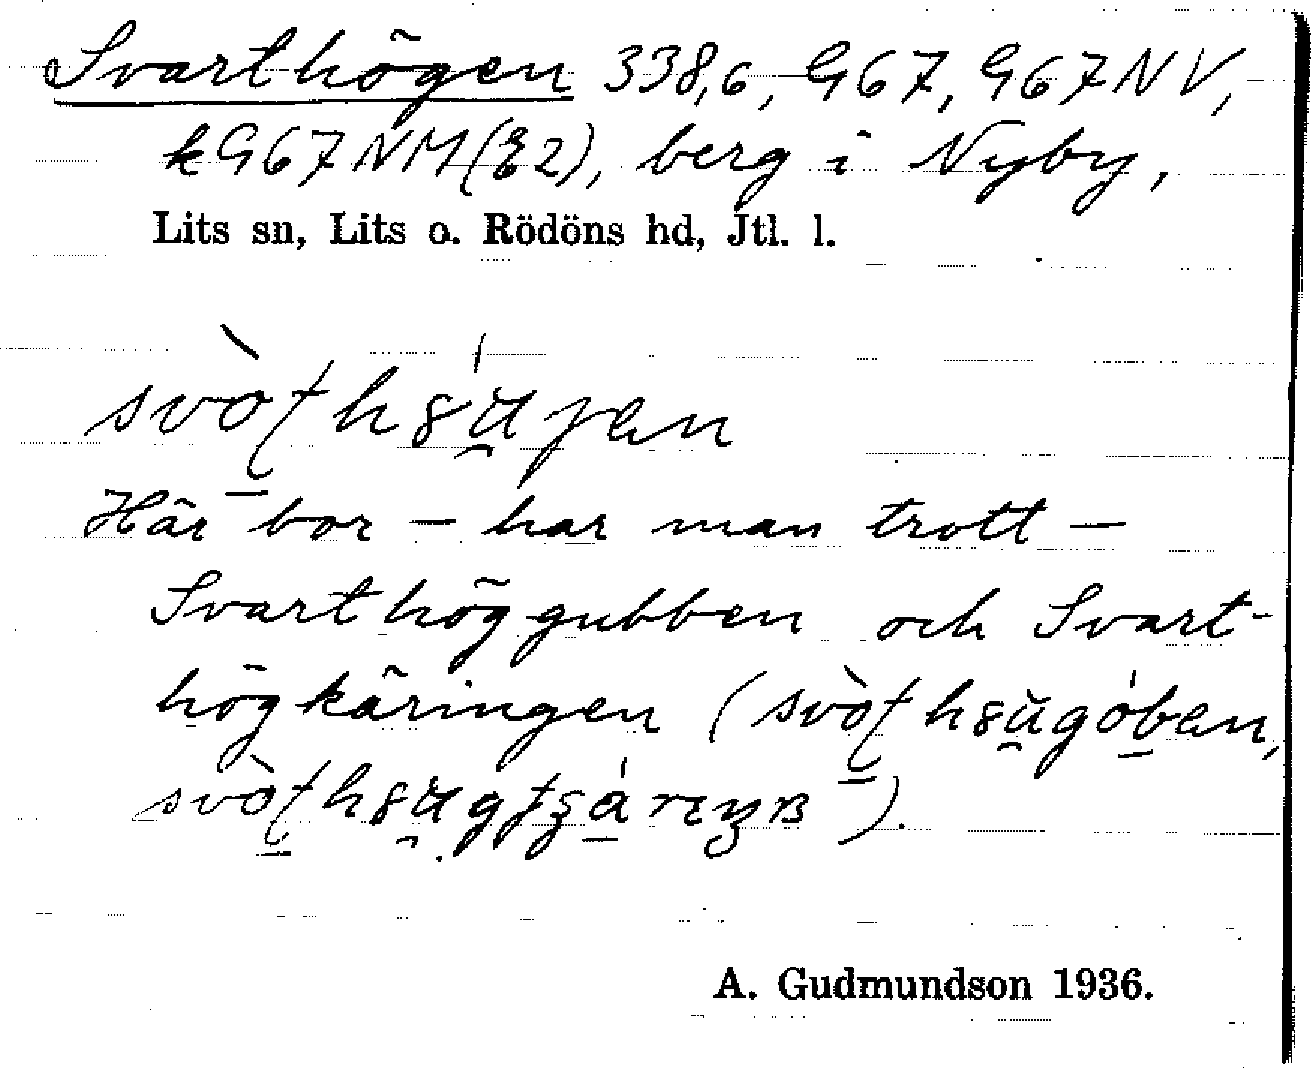 Svarthögen 338,6, G67, G67NV,
kG67NM(E2), berg i Nyby,
Lits sn, Lits o. Rödöns hd, Jtl. l.
Här bor – har man trott –
Svarthöggubben och Svart-
högkäringen
A. Gudmundson 1936.